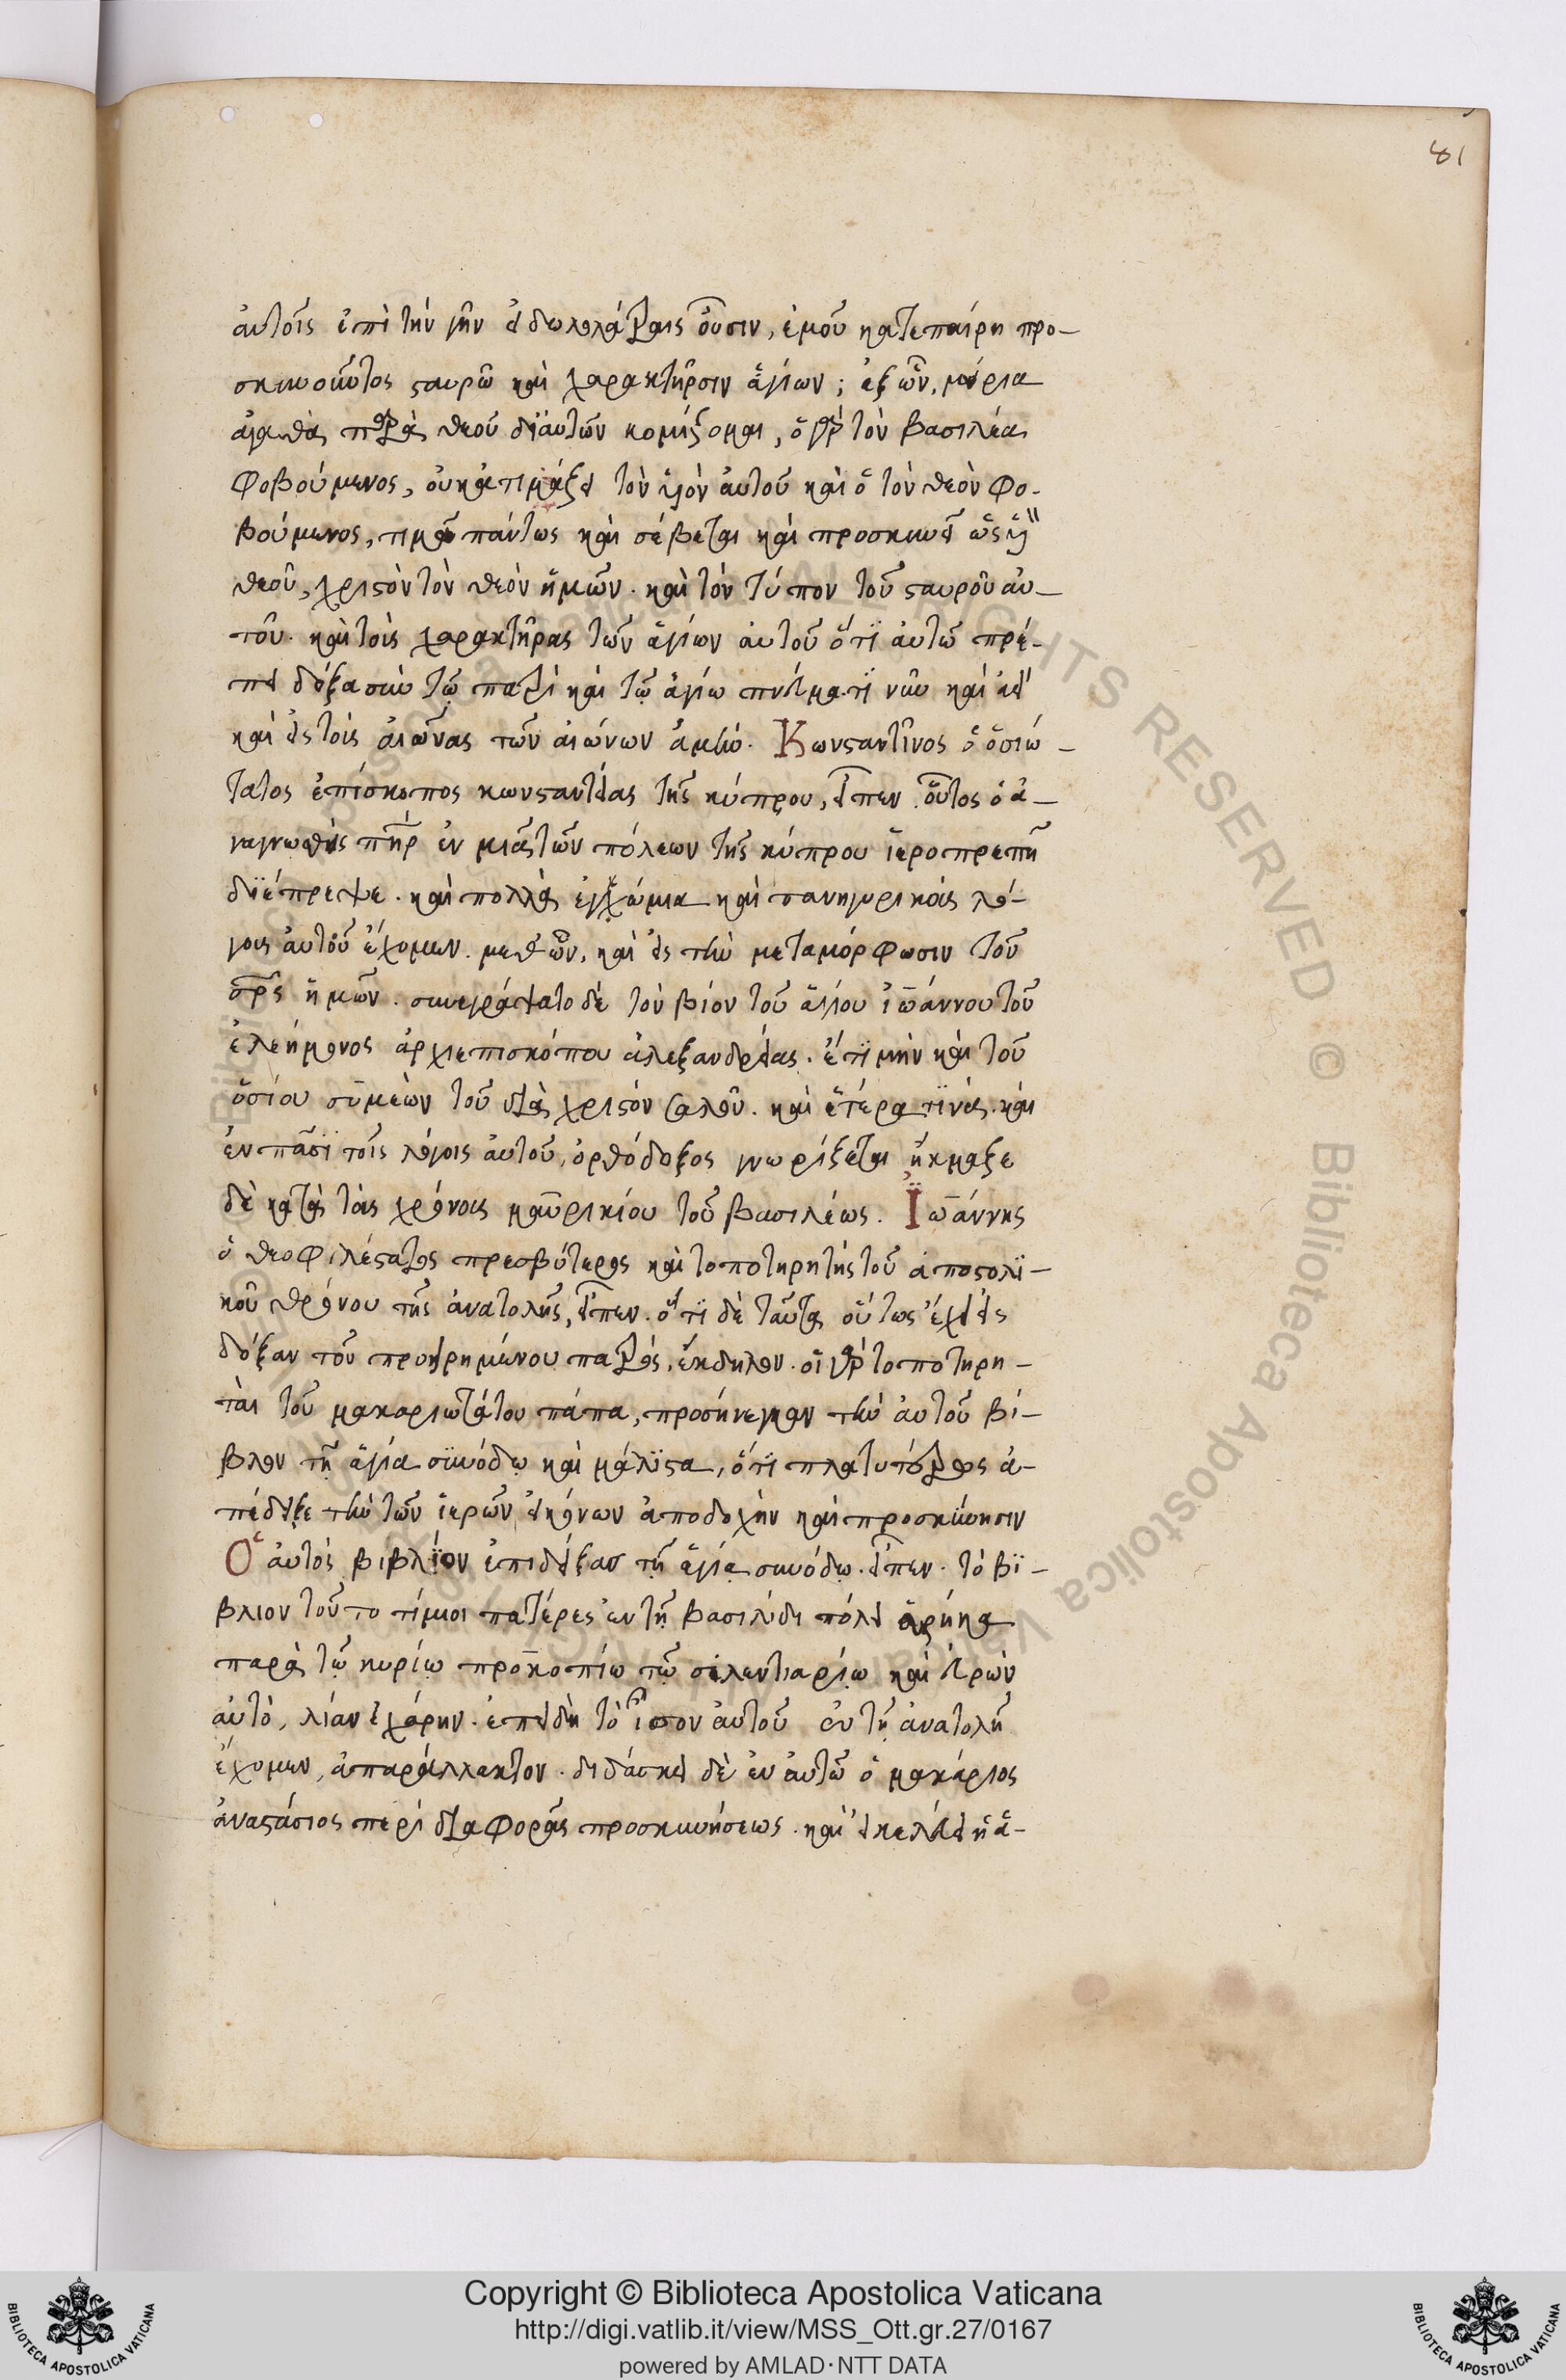 81
αὐτοῖς ἐπὶ τὴν γῆν εἰδωλολάτραις οὖσιν, ἐμοῦ κατεπαίρῃ προ-
σκυνοῦντος σταυρῶ καὶ χαρακτῆρσιν ἁγίων; ἐξ ὧν, μύρια
ἀγαθὰ παρὰ θεοῦ δι αὐτῶν κομίζομαι, ὁ γὰρ τὸν βασιλέα
φοβούμενος, οὐκ ἀτιμάζει τὸν υἱὸν αὐτοῦ καὶ ὁ τὸν θεὸν φο-
βούμενος, τιμᾶ πάντως καὶ σέβεται καὶ προσκυνεῖ ὡς υἱὸν
θεοῦ, χριστὸν τὸν θεὸν ἡμῶν. καὶ τὸν τύπον τοῦ σταυροῦ αὐ-
τοῦ. καὶ τοὺς χαρακτῆρας τῶν ἁγίων αὐτοῦ ὅτι αὐτῶ πρέ-
πει δόξα σὺν τῷ πατρὶ καὶ τῷ ἁγίω πνεύματι νῦν καὶ ἀεὶ
καὶ εἰς τοὺς αἰῶνας τῶν αἰώνων ἀμήν. Κωνσταντῖνος ὁ ὁσιώ-
τατος ἐπίσκοπος κωνσταντείας τῆς κύπρου, εἶπεν. οὗτος ὁ ἀ-
ναγνωσθεὶς πηρ ἐν μιᾷ τῶν πόλεων τῆς κύπρου ἱεροπρεπῆ
διέπρεψε. καὶ πολλὰ ἐγκώμια καὶ πανηγυρικοὺς λό-
γους αὐτοῦ ἔχομεν. μεθ ὧν, καὶ εἰς τὴν μεταμόρφωσιν τοῦ
σρς ἡμῶν. συνεγράψατο δὲ τὸν βίον τοῦ ἁγίου ἰωάννου τοῦ
ἐλεήμονος ἀρχιεπισκόπου ἀλεξανδρείας. ἔτι μὴν καὶ τοῦ
ὁσίου συμεὼν τοῦ διὰ χριστὸν σαλοῦ. καὶ ἕτερα τινὰ. καὶ
ἐν πᾶσι τοῖς λόγοις αὐτοῦ, ὀρθόδοξος γνωρίζεται ἤκμαζε
δὲ κατὰ τοὺς χρόνους μαυρικίου τοῦ βασιλέως. Ἰωάννης
ὁ θεοφιλέστατος πρεσβύτερος καὶ τοποτηρητὴς τοῦ ἀποστολι-
κοῦ θρόνου τῆς ἀνατολῆς, εἶπεν. ὅτι δὲ ταῦτα οὕτως ἔχει εἰς
δόξαν τοῦ προειρημένου πατρὸς, ἔκδηλον. οἱ γὰρ τοποτηρη-
ταὶ τοῦ μακαριωτάτου πάπα, προσήνεγκαν τὴν αὐτοῦ βί-
βλον τῇ ἁγία συνόδῳ καὶ μάλιστα, ὅτι πλατυτέρως ἀ-
πέδειξε τὴν τῶν ἱερῶν εἰκόνων ἀποδοχὴν καὶ προσκύνησιν
Ὁ αὐτὸς βιβλίον ἐπιδείξας τῇ ἁγίᾳ συνόδῳ. εἶπεν. τὸ βι-
βλιον τοῦτο τίμιοι πατέρες ἐν τῇ βασιλίδι πόλει εὕρηκα
παρὰ τῷ κυρίῳ προκοπίω τῷ σιλεντιαρίῳ καὶ εὑρὼν
αὐτὸ, λίαν ἐχάρην. ἐπειδὴ τὸ ἴσον αὐτοῦ ἐν τῇ ἀνατολῇ
ἔχομεν, ἀπαράλλακτον. διδάσκει δὲ ἐν αὐτῶ ὁ μακάριος
ἀναστάσιος περὶ διαφορᾶς προσκυνήσεως. καὶ εἰ κελεύει ἡ ἁ-
Copyright © Biblioteca Apostolica Vaticana
http://digi.vatlib.it/view/MSS_Ott.gr.27/0167
powered by AMLAD·NTT DATA